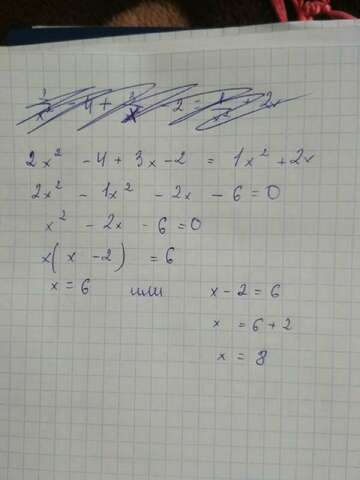 2x² - 4 + 3x - 2 = 1x² + 2x
2x² - 1x² - 2x - 6 = 0
x² - 2x - 6 = 0
x(x - 2) = 6
x = 6 или x - 2 = 6
x = 6 + 2
x = 8